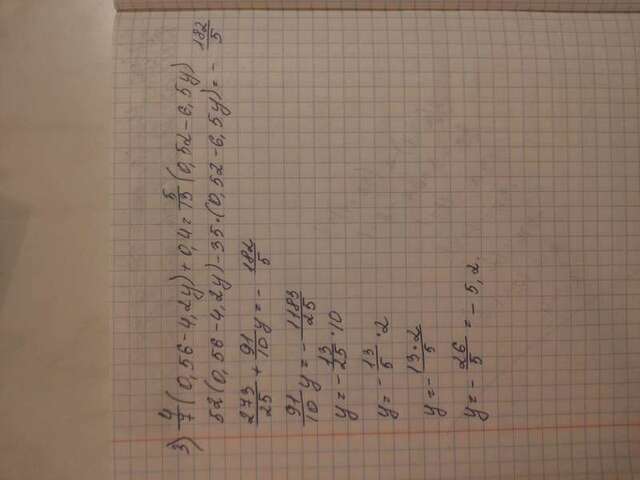 3) 4/7(0,56-4,2y)+0,4=5/13(0,52-6,5y)
52(0,56-4,2y)-35·(0,52-6,5y)=-182/5
273/25+91/10y=-182/5
91/10y=-1183/25
y=-13/25·10
y=-13/5·2
y=-13·2/5
y=-26/5=-5,2.